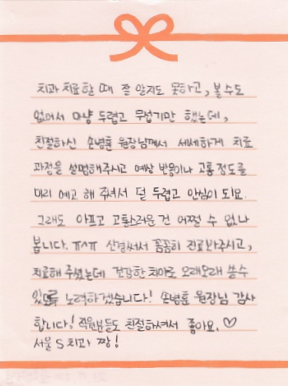 치과 치료할 때 잘 알지도 못하고, 볼수도
없어서 마냥 두렵고 무섭기만 했는데,
친절하신 손병훈 원장님께서 세세하게 치료
과정을 설명해주시고 예상 반응이나 고통 정도를
미리 예고 해 주셔서 덜 두렵고 안심이 되요.
그래도 아프고 고통스러운 건 어쩔 수 없나
봅니다. ㅠ^ㅠ 신경써서 꼼꼼히 진료봐주시고,
치료해 주셨는데 건강한 치아로 오래오래 쓸수
있도록 노력하겠습니다! 손병훈 원장님 감사
합니다! 직원분들도 친절하셔서 좋아요. ♡
서울 S 치과 짱!